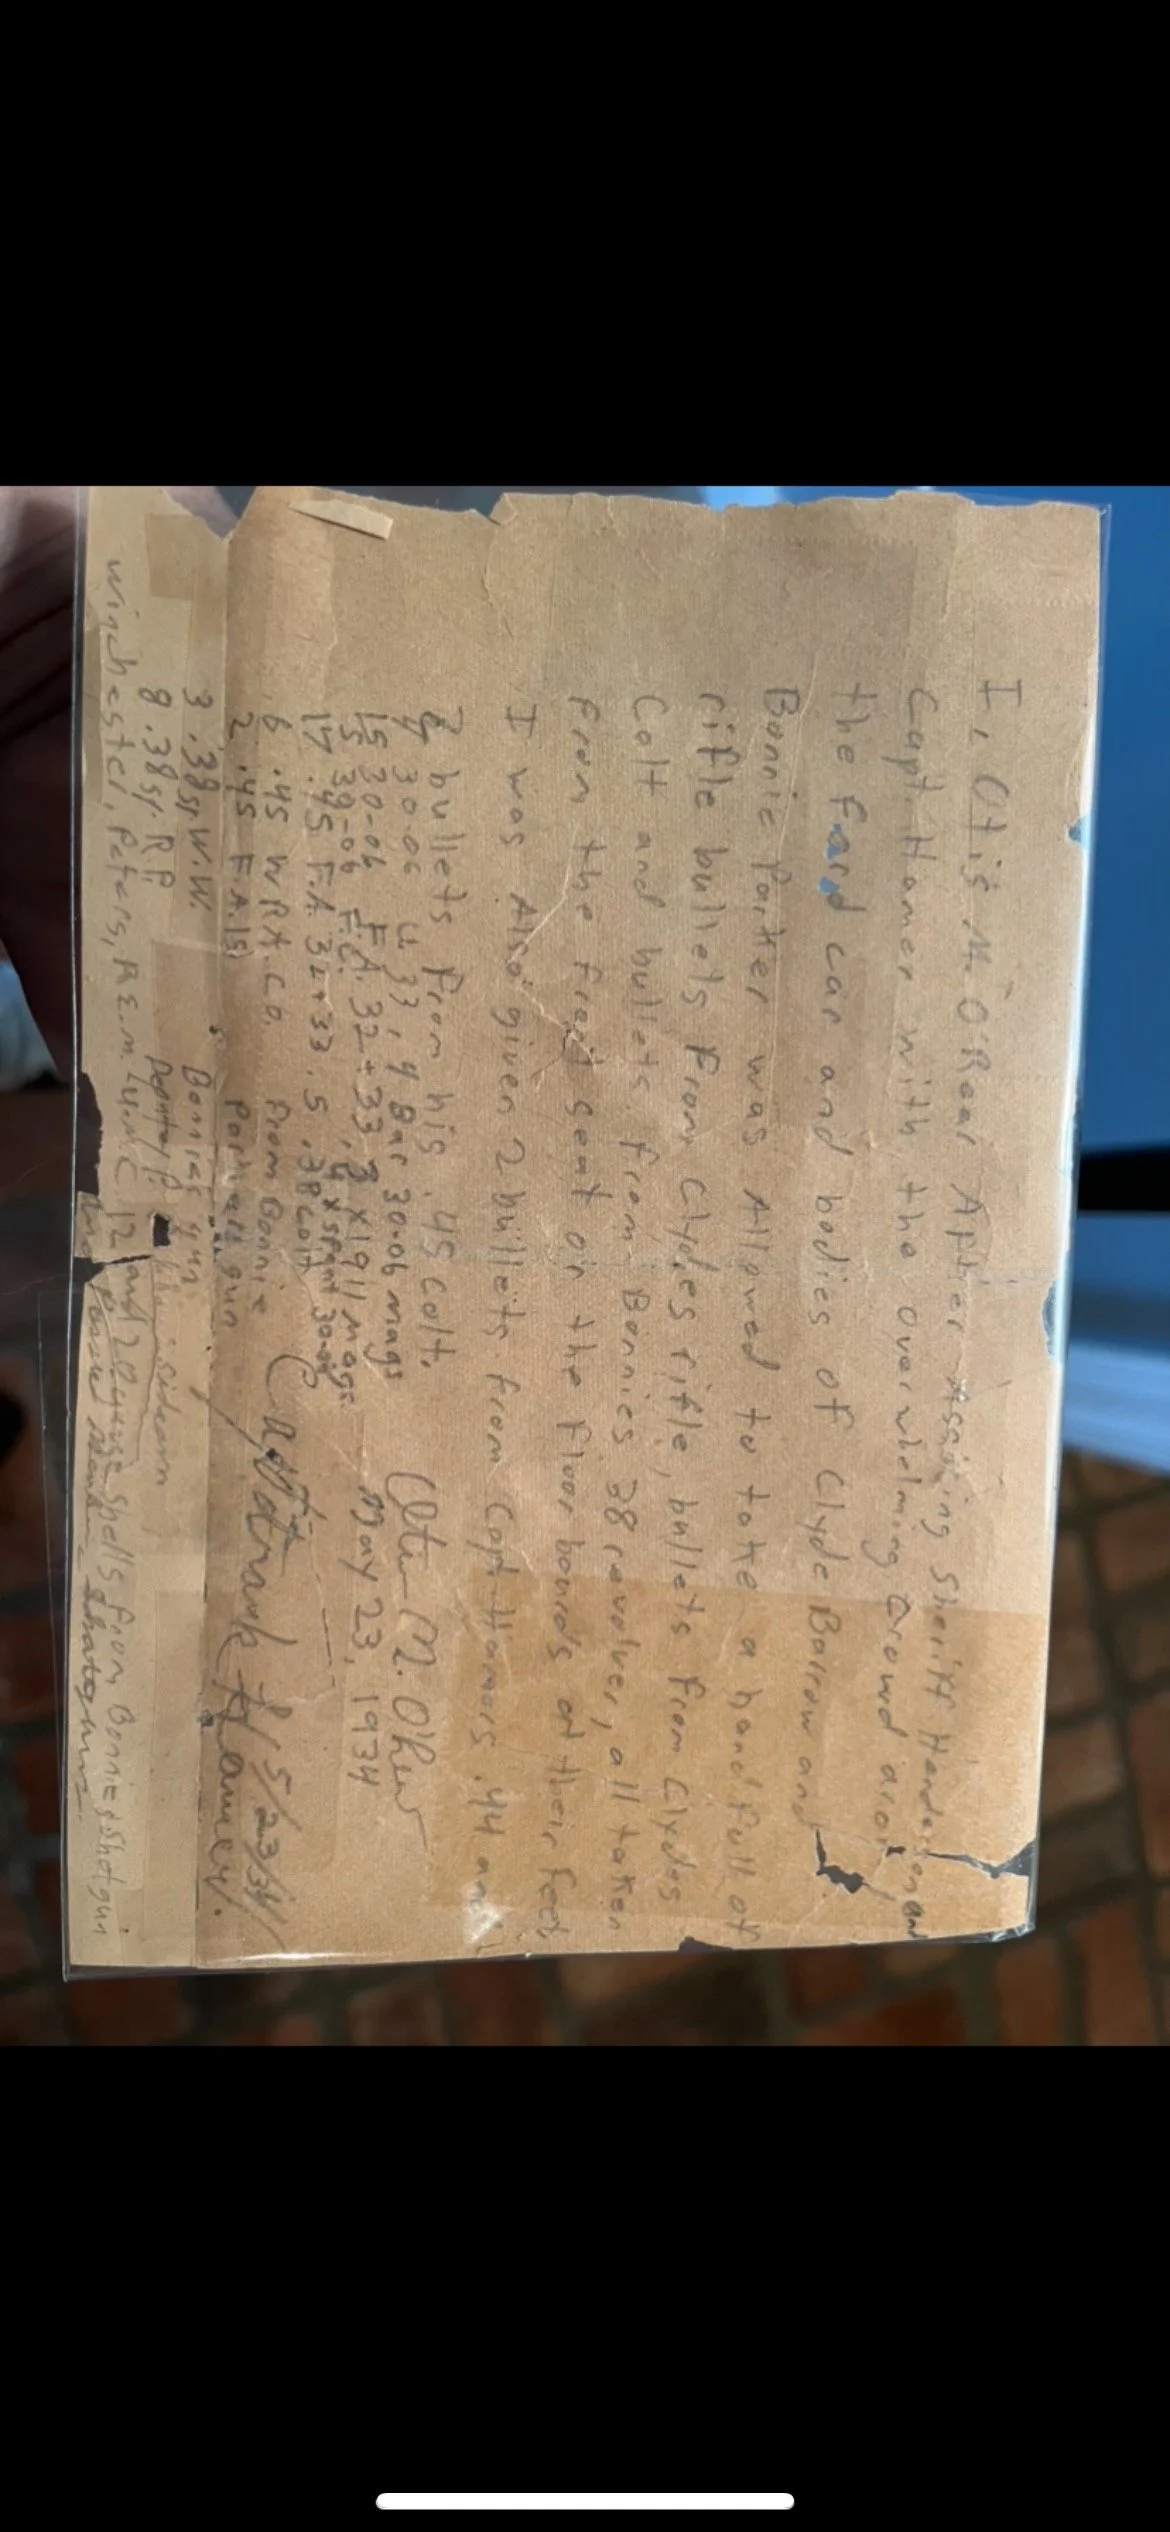 I, Otis M. O'Rear After Assisting Sheriff Henderson and
Capt. Hamer with the overwhelming crowd aro
the Ford car and bodies of Clyde Barrow and
Bonnie Parker was Allowed to take a hand full of
rifle bullets from Clydes rifle, bullets from Clydes
Colt and bullets from Bonnies 38 revolver, all taken
from the front seat or the floor boards at their feet.
I was Also given 2 bullets from Capt Hamers .44 and
bullets from his .45 colt.
30.06 33, 4 Bar 30.06 mags
15 30-06 F.A. 32+33, 3 x 1911 mags
15 30-06 4 x spent 30-06
17 .45 F.A. 32+33. 5 .38 colt
6 .45 W.R.A.CO. From Bonnie
2 .45 F.A. Parkers gun
3 .38 sp. W.W. Bonnies gun
8 .38 sp. R.P. sidearm
Winchester, Peters, REM. U.M.C. 12 and 20 gauge shells from Bonnies shotgun
Otis M. O'Rear
May 23, 1934
Capt Frank Hamer.
5/23/34